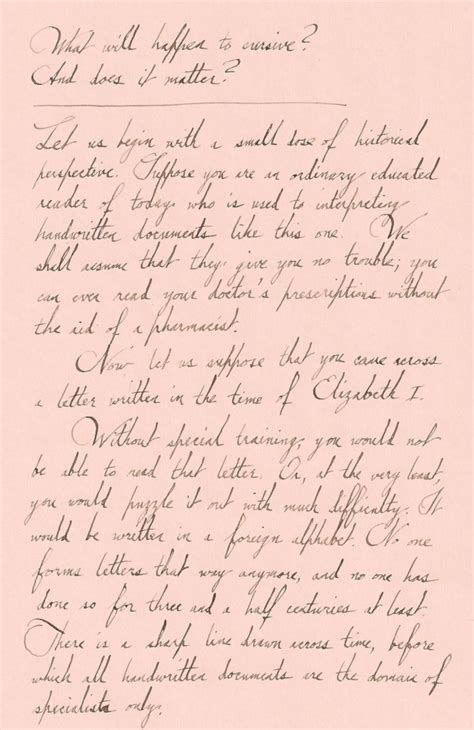 What will happen to cursive?
And does it matter?
Let us begin with a small dose of historical
perspective. Suppose you are an ordinary educated
reader of today who is used to interpreting
handwritten documents like this one. We
shall assume that they give you no trouble; you
can even read your doctor's prescriptions without
the aid of a pharmacist.
Now let us suppose that you came across
a letter written in the time of Elizabeth I.
Without special training, you would not
be able to read that letter. Or, at the very least,
you would puzzle it out with much difficulty. It
would be written in a foreign alphabet. No one
forms letters that way anymore, and no one has
done so for three and a half centuries at least.
There is a sharp line drawn across time, before
which all handwritten documents are the domain of
specialists only.